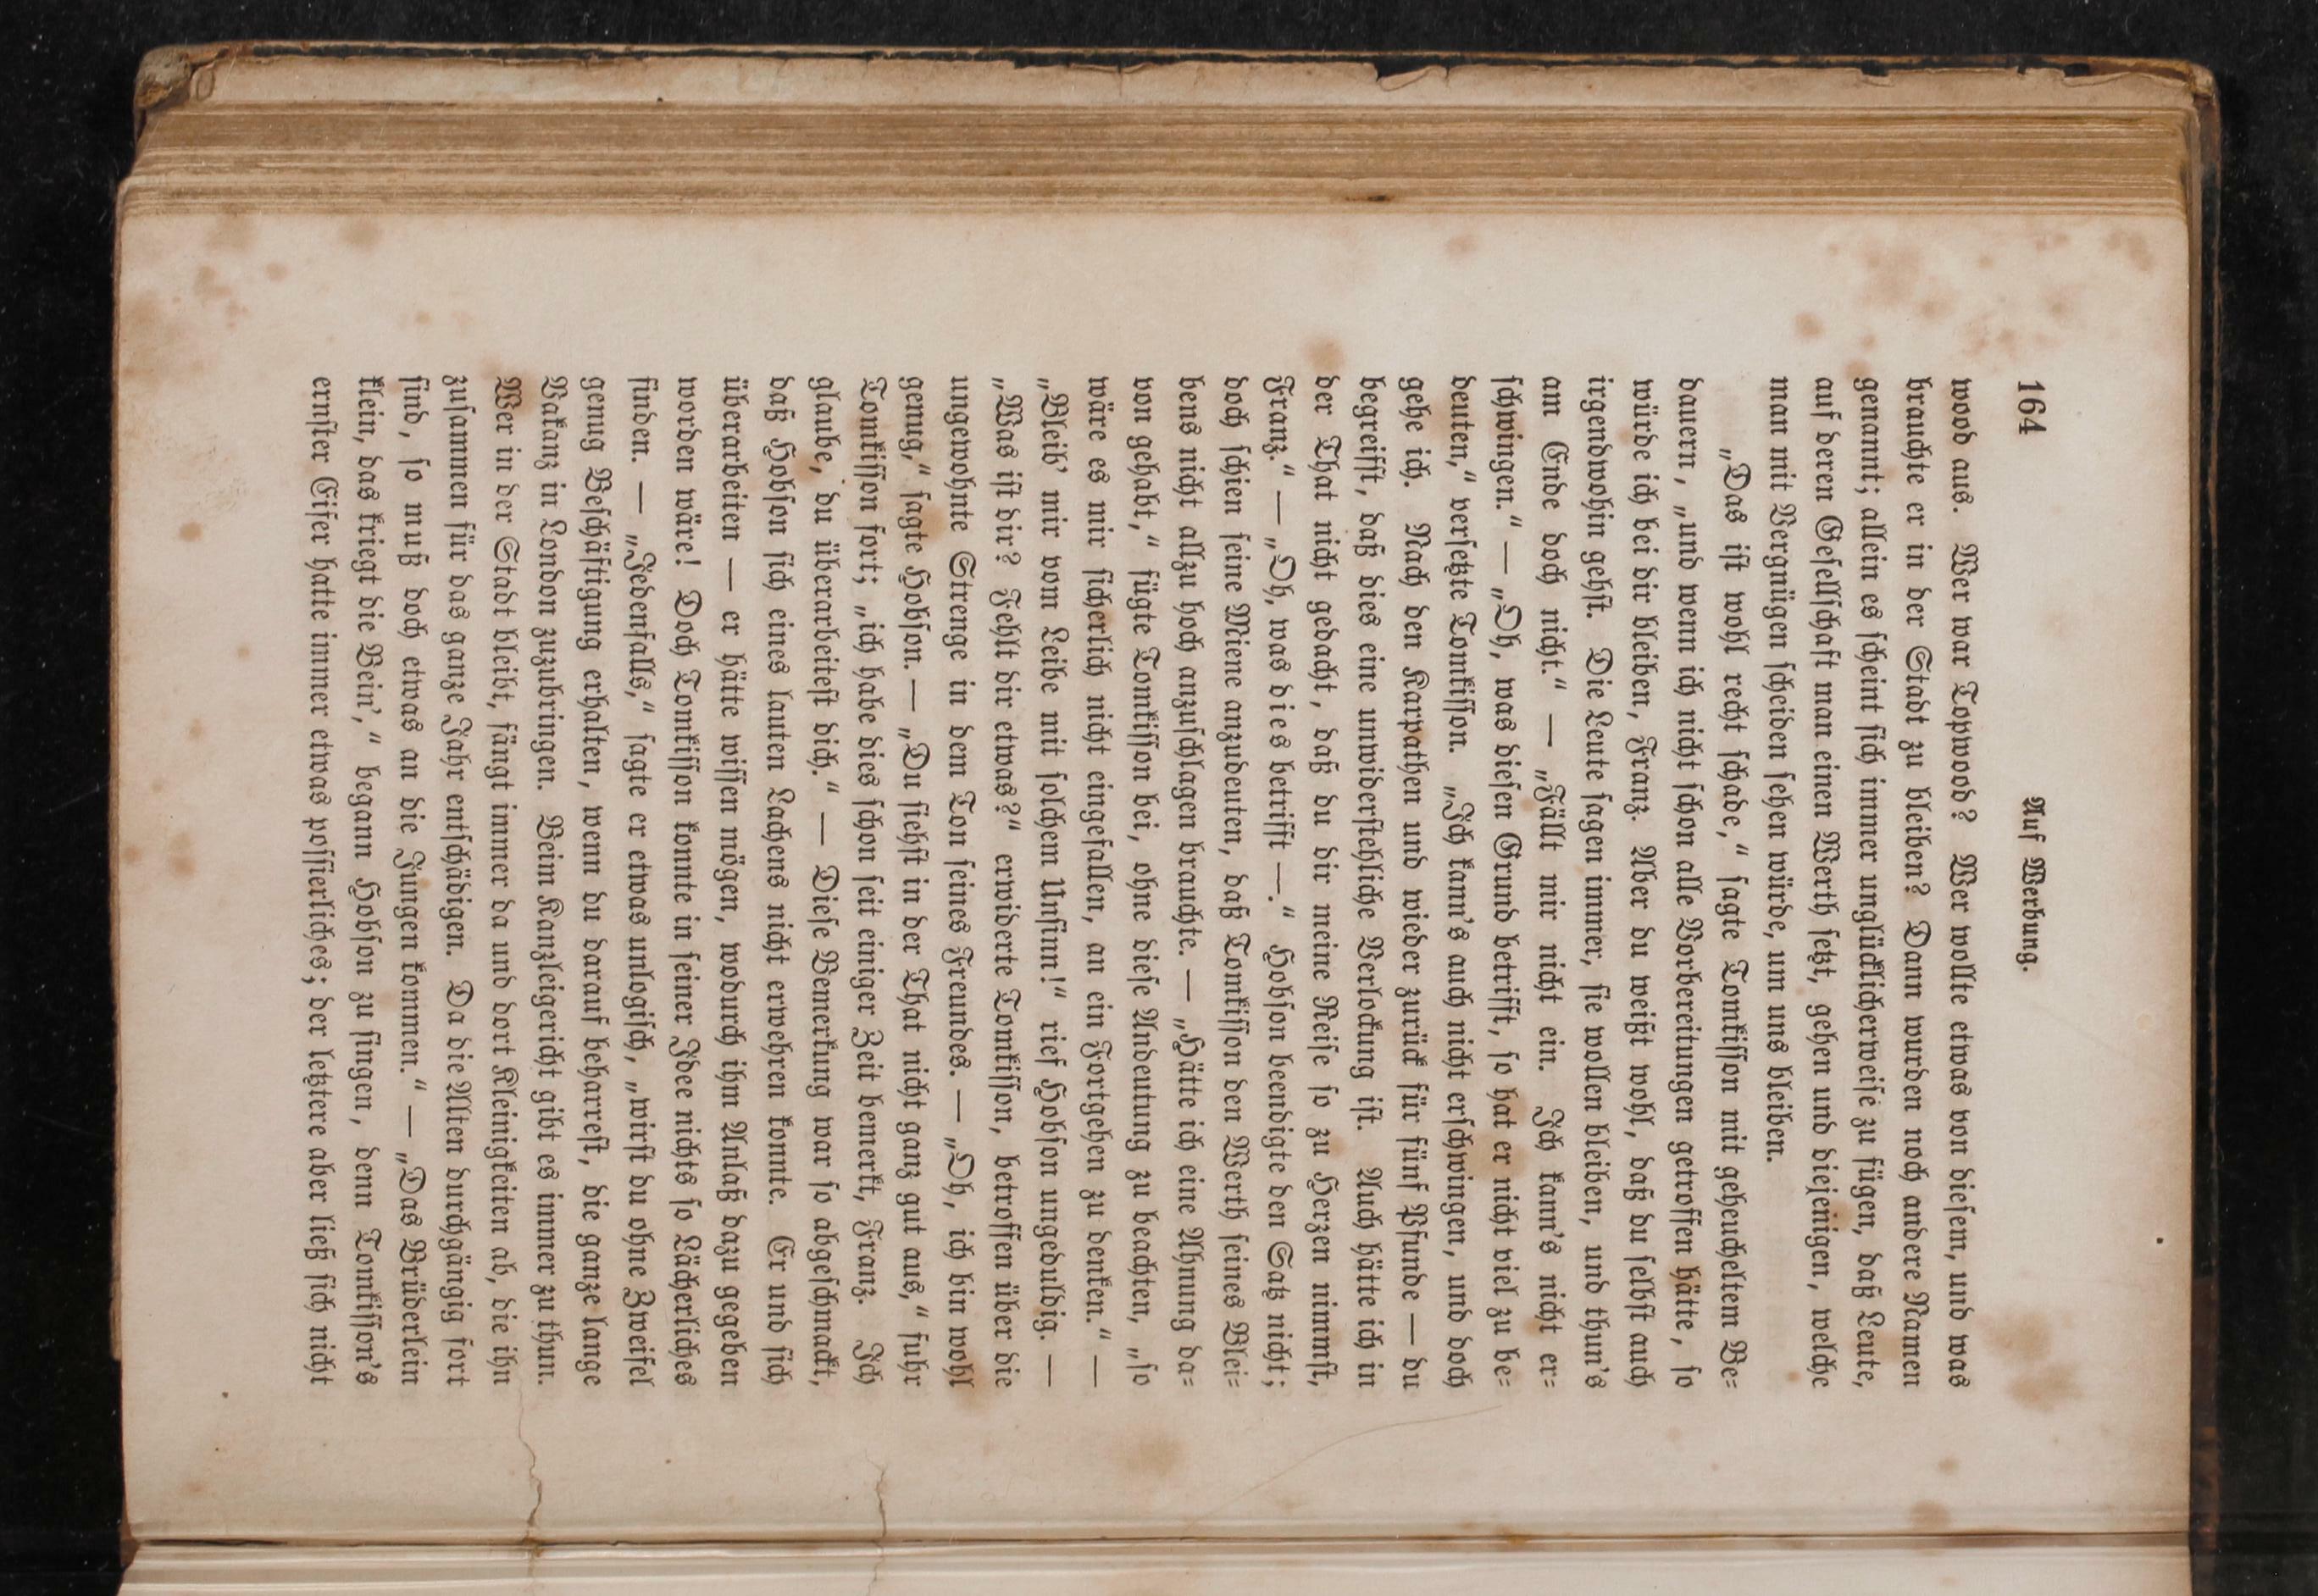 164 Auf Werbung.
wood aus. Wer war Topwood? Wer wollte etwas von dieſem, und was
brauchte er in der Stadt zu bleiben? Dann wurden noch andere Namen
genannt; allein es ſcheint ſich immer unglücklicherweiſe zu fügen, daß Leute,
auf deren Geſellſchaft man einen Werth ſetzt, gehen und diejenigen, welche
man mit Vergnügen ſcheiden ſehen würde, um uns bleiben.
„Das iſt wohl recht ſchade,“ ſagte Tomkiſſon mit geheucheltem Be-
dauern, „und wenn ich nicht ſchon alle Vorbereitungen getroffen hätte, ſo
würde ich bei dir bleiben, Franz. Aber du weißt wohl, daß du ſelbſt auch
irgendwohin gehſt. Die Leute ſagen immer, ſie wollen bleiben, und thun's
am Ende doch nicht.“ — „Fällt mir nicht ein. Ich kann's nicht er-
ſchwingen.“ — „Oh, was dieſen Grund betrifft, ſo hat er nicht viel zu be-
deuten,“ verſetzte Tomkiſſon. „Ich kann's auch nicht erſchwingen, und doch
gehe ich. Nach den Karpathen und wieder zurück für fünf Pfunde — du
begreifſt, daß dies eine unwiderſtehliche Verlockung iſt. Auch hätte ich in
der That nicht gedacht, daß du dir meine Reiſe ſo zu Herzen nimmſt,
Franz.“ — „Oh, was dies betrifft —.“ Hobſon beendigte den Satz nicht;
doch ſchien ſeine Miene anzudeuten, daß Tomkiſſon den Werth ſeines Blei-
bens nicht allzu hoch anzuſchlagen brauchte. — „Hätte ich eine Ahnung da-
von gehabt,“ fügte Tomkiſſon bei, ohne dieſe Andeutung zu beachten, „ſo
wäre es mir ſicherlich nicht eingefallen, an ein Fortgehen zu denken.“ —
„Bleib' mir vom Leibe mit ſolchem Unſinn!“ rief Hobſon ungeduldig. —
„Was iſt dir? Fehlt dir etwas?“ erwiderte Tomkiſſon, betroffen über die
ungewohnte Strenge in dem Ton ſeines Freundes. — „Oh, ich bin wohl
genug,“ ſagte Hobſon. — „Du ſiehſt in der That nicht ganz gut aus,“ fuhr
Tomkiſſon fort; „ich habe dies ſchon ſeit einiger Zeit bemerkt, Franz. Ich
glaube, du überarbeiteſt dich.“ — Dieſe Bemerkung war ſo abgeſchmackt,
daß Hobſon ſich eines lauten Lachens nicht erwehren konnte. Er und ſich
überarbeiten — er hätte wiſſen mögen, wodurch ihm Anlaß dazu gegeben
worden wäre! Doch Tomkiſſon konnte in ſeiner Idee nichts ſo Lächerliches
finden. — „Jedenfalls,“ ſagte er etwas unlogiſch, „wirſt du ohne Zweifel
genug Beſchäftigung erhalten, wenn du darauf beharreſt, die ganze lange
Vakanz in London zuzubringen. Beim Kanzleigericht gibt es immer zu thun.
Wer in der Stadt bleibt, fängt immer da und dort Kleinigkeiten ab, die ihn
zuſammen für das ganze Jahr entſchädigen. Da die Alten durchgängig fort
ſind, ſo muß doch etwas an die Jungen kommen.“ — „Das Brüderlein
klein, das kriegt die Bein',“ begann Hobſon zu ſingen, denn Tomkiſſon's
ernſter Eifer hatte immer etwas poſſierliches; der letztere aber ließ ſich nicht